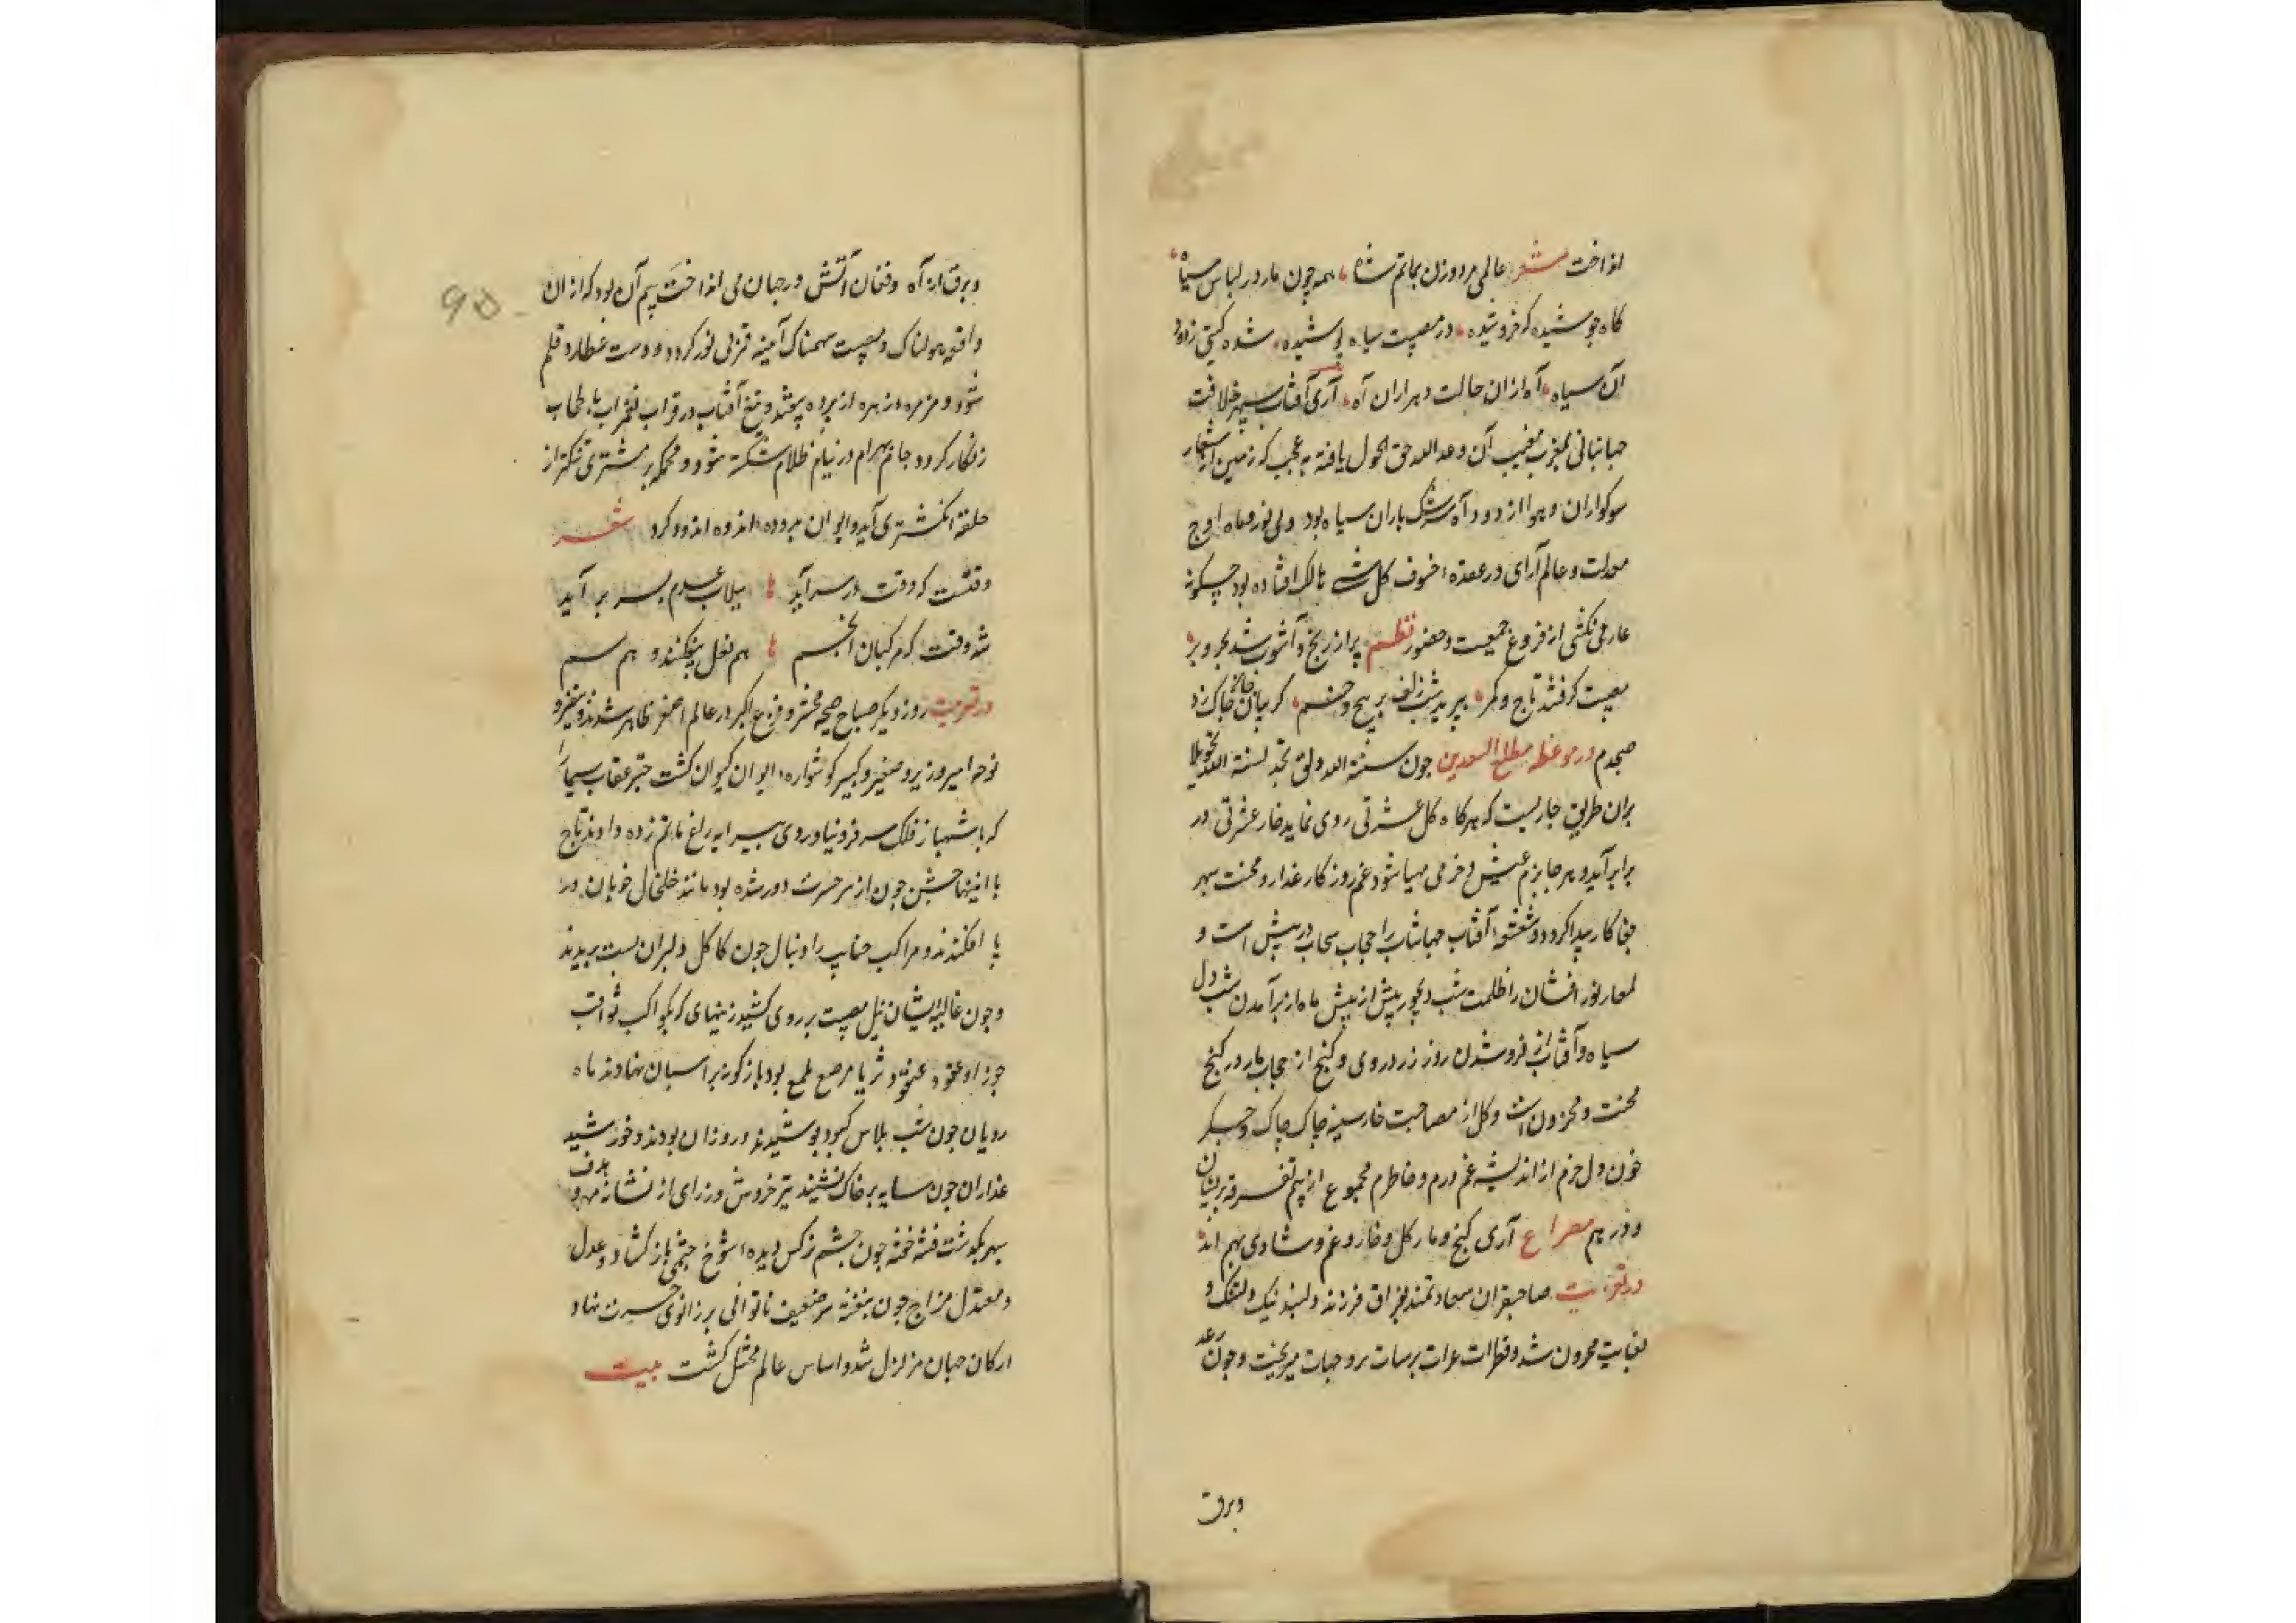 انداخت شعر عالمی مرد و زن بماتم شاه همه چون مار در لباس سیاه
کاه جوشیده که خروشیده در مصیبت سیاه پوشیده شده کیتی زدود
آن سیاه آه ازان حالت و هزاران آه آری آفتاب سپهر خلافت
جهانبانی بمغرب مغیب آن وعد الله حق افول یافته به عجب که زمین از شعار
سوکواران و هوا از دود آه سرشک باران سیاه بود ولی نور و ماه اوج
معدلت و عالم آرای در عقدهٔ خسوف کل شیء هالک افتاده بود چکونه
عاری نکشتی از فروغ جمعیت و حضور نظم پر از رنج و آشوب شد بحر و بر
مصیبت کرفتند تاج و کمر ببرید شب زلف پر پیچ و خم کریبان جامه چاک زد
صبحدم در موعظه مطلع السعدین چون سنة الله ولن تجد لسنة الله تحویلا
بران طریق جاریست که هرکاه کل عشرتی روی نماید خار عشرتی در
برابر آید و هر جا بزم عیش و خرمی مهیا شود غم روزکار غدار و محنت سپهر
جفاکار پیدا کردد و شعشعهٔ آفتاب جهانتاب را حجاب سحاب در پیش است و
لمعات نور افشان را ظلمت شب دیجور بیش از پیش ماه از برآمدن شب دل
سیاه و آفتاب از فروشدن روز زرد روی و کنج از حجاب مار در کنج
محنت و محزون است و کل از مصاحبت خار سینه چاک چاک و جکر
خون و دل خرم از اندیشه غم درم و خاطرم مجموع از بیم تفرقه پریشان
و درهم مصراع آری کنج و مار کل و خار و غم و شادی بهم اند
در تعزیت صاحبقران سعادتمند بفراق فرزند دلبند نیک دلتنک و
بغایت محزون شد و قطرات عبرات برسات بر وجنات میریخت و چون رعد
وبرق
وبرق از آه و فغان آتش در جهان می انداخت بیم آن بود که از ان
واقعه هولناک و مصیبت سهمناک آیینه قمر بی نور کردد و دست عطارد قلم
شود و مزمر زهره از پرده بیفتد و تیغ آفتاب در قراب تغیر آب با طحاب
زنکار کردد جام بهرام در نیام ظلام شکسته شود و محکمه مشتری تنکتر از
حلقهٔ انکشتری آید و ایوان بدوده اندوه اندود کردد شعر
وقتست که وقت در سر آید سیلاب عدم بسر بر آید
شد وقت که مرکبان انجم هم نعل بیفکنند و هم سم
در تعزیت روز دیکر صباح صیحه محشر و فزع اکبر در عالم اصغر ظاهر شد نفیر و
نوحهٔ امیر و وزیر و صغیر و کبیر کوشوارهٔ ایوان کیوان کشت چتر عقاب سیما را
که با شهباز فلک سر فرو نیاوردی پیرایه زاغ ماتم زده دادند تاج
با انینها جشن چون از سر حسرت دور شده بود مانند خلخال خوبان در
پا افکندند و مراکب جنایب را دنبال چون کاکل دلبران پست بریدند
و چون غالیه ایشان نیل مصیبت بر روی کشید زینهای که بکواکب ثواقب
جوزا و عقود عنقود ثریا مرصع ملمع بود بازکونه بر اسبان نهادند ماه
رویان چون شب پلاس کبود پوشیدند و روزان بودند و خورشید
عذاران چون سایه بر خاک نشیند تیر خروش و زاری از نشانه هدف
سپهر بکذشت فتنه خفته چون چشم نرکس دیدهٔ شوخ چشمی باز کشاد و عدل
و معتدل مزاج چون بنفشه سر ضعیف ناتوانی بر زانوی حسرت نهاد
ارکان جهان مزلزل شد و اساس عالم مختل کشت بیت